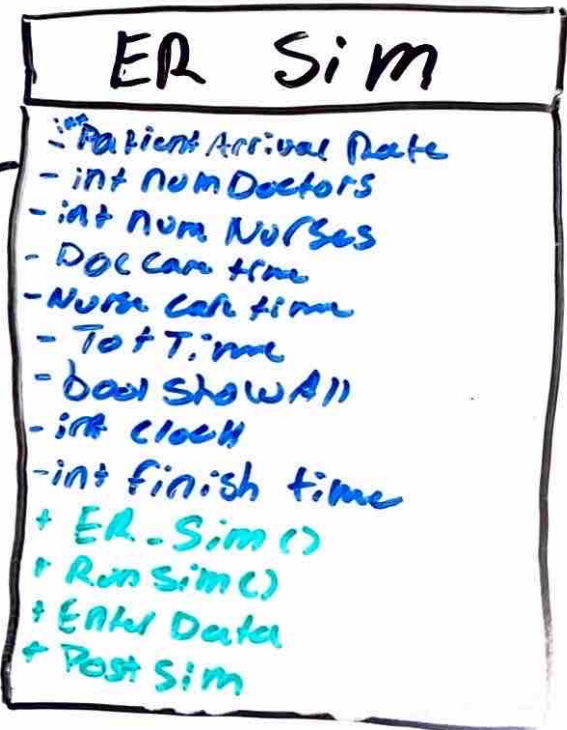 ER Sim
- int Patient Arrival Rate
- int num Doctors
- int num Nurses
- Doc Care time
- Nurse Care time
- Tot Time
- bool ShowAll
- int Clock
- int finish time
+ ER_Sim()
+ RunSim()
+ Enter Data
+ Post Sim